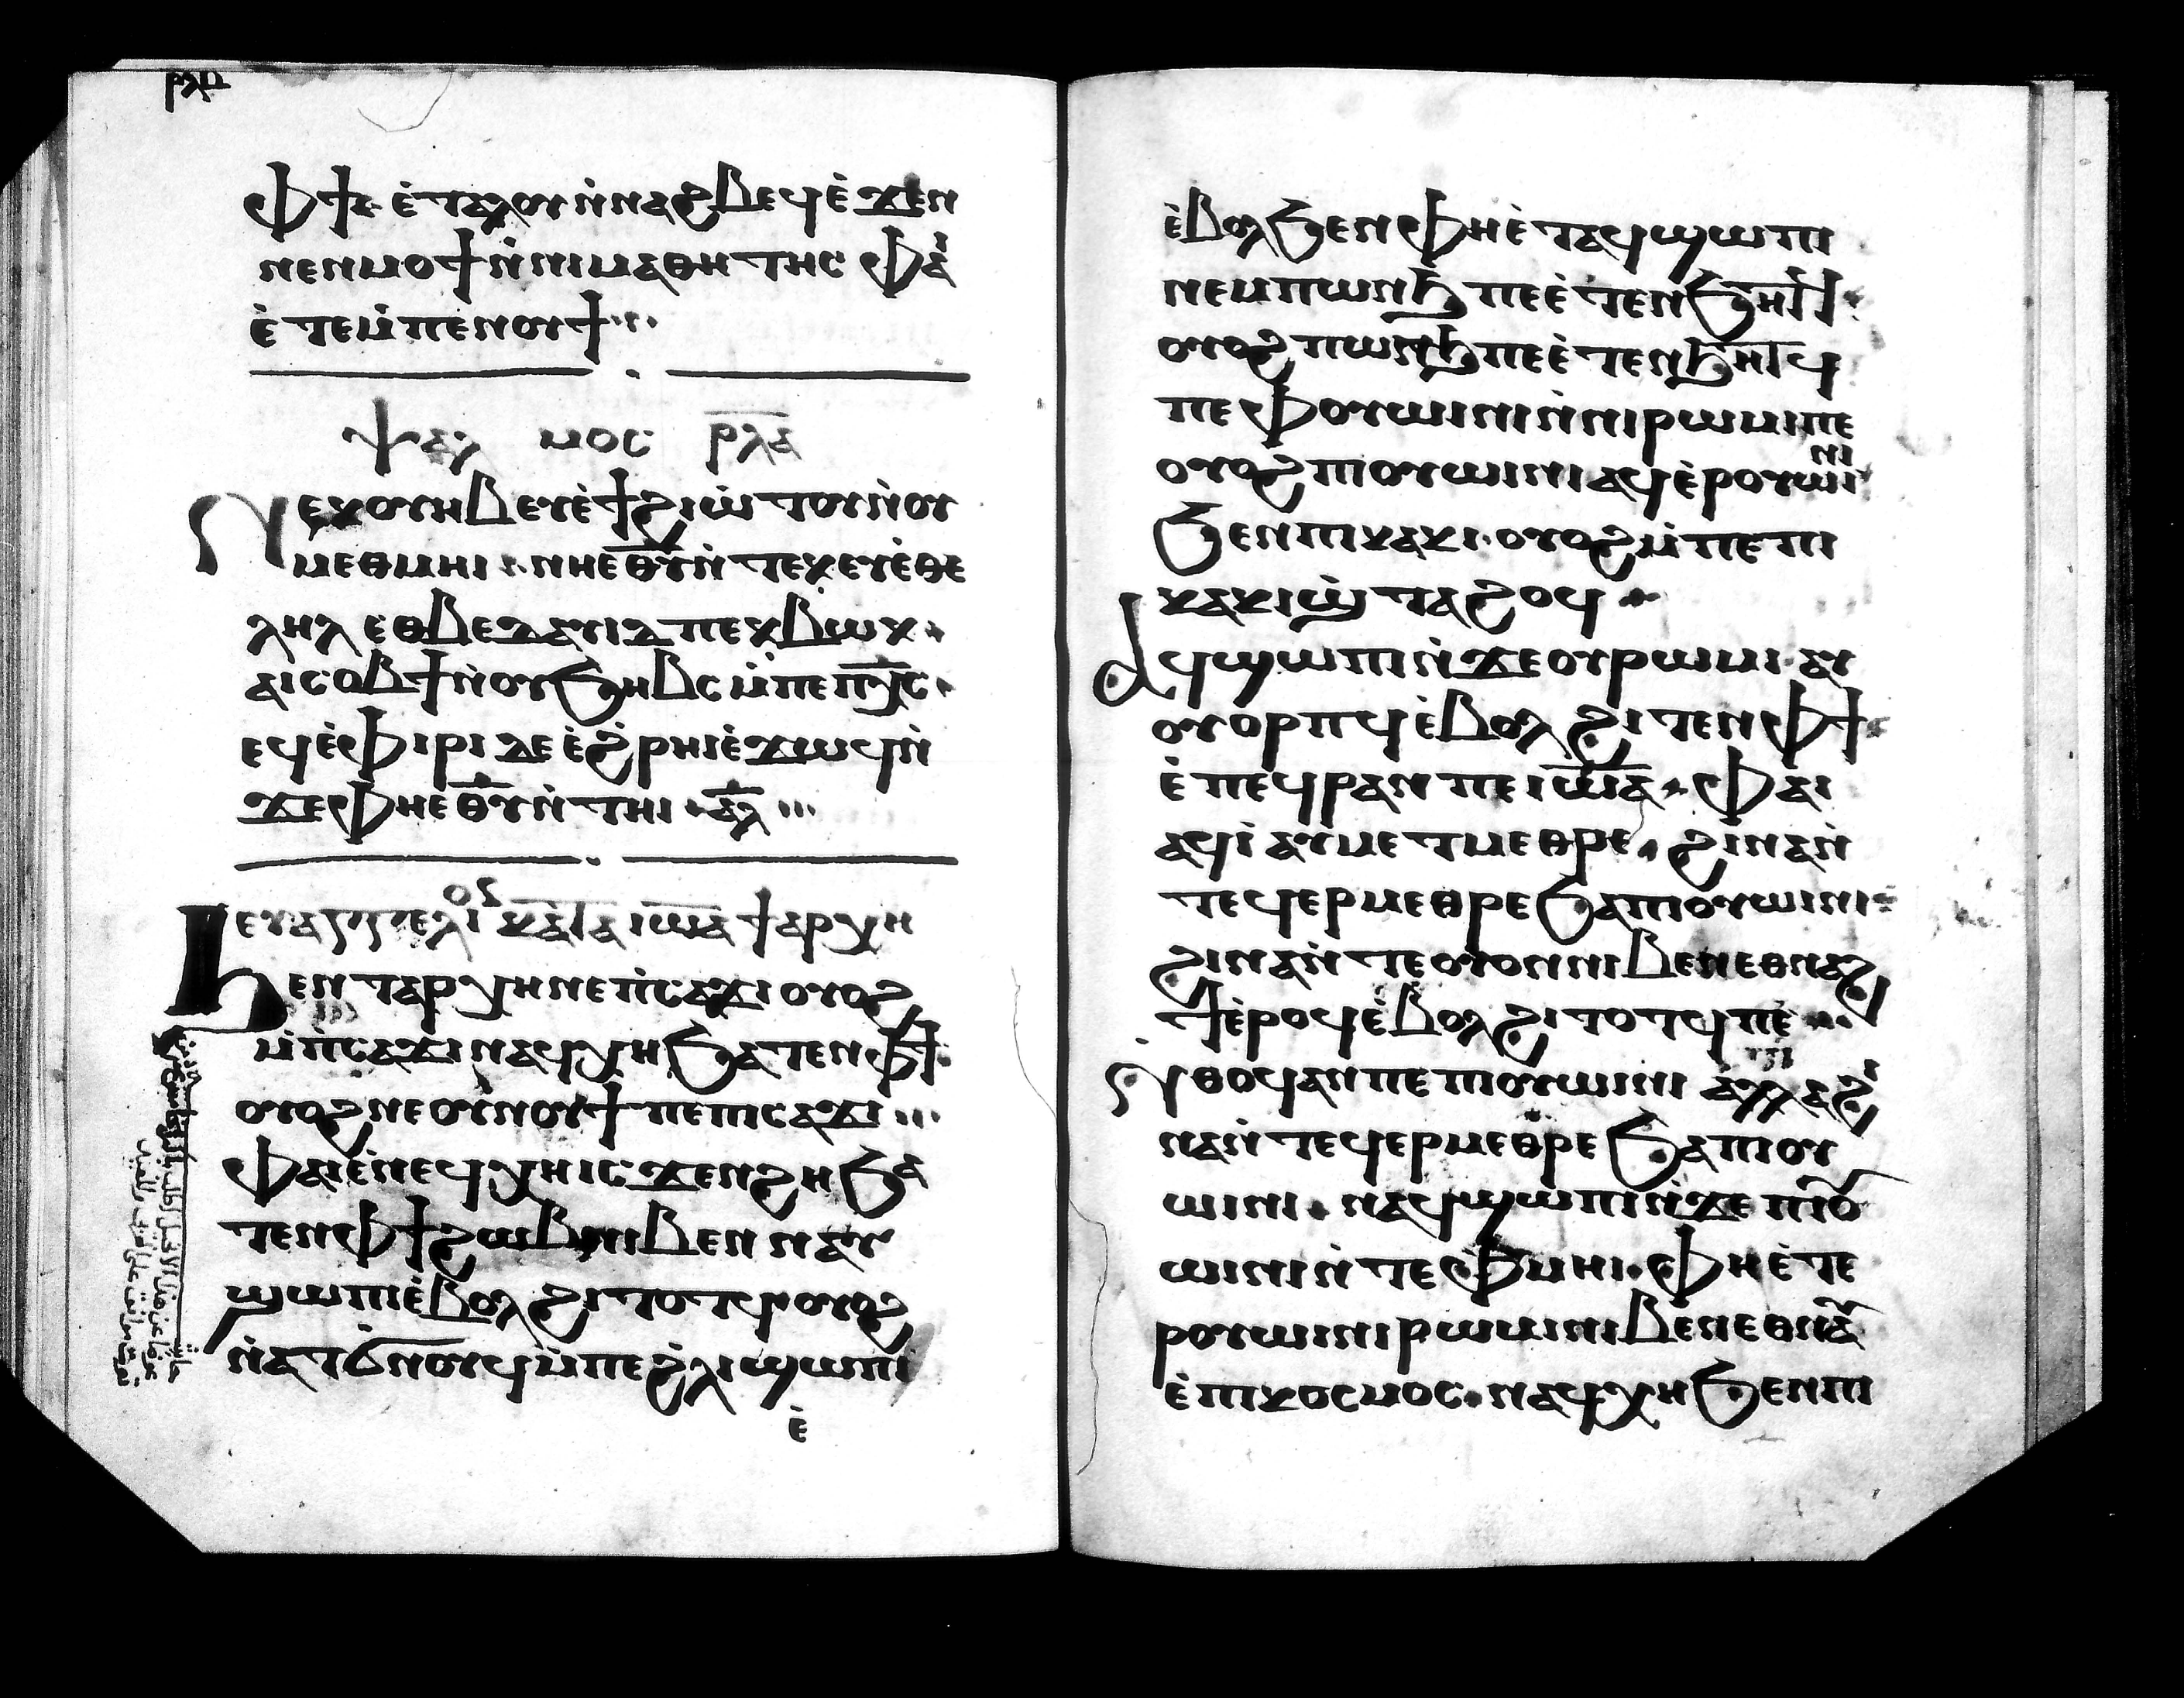 ⲣⲗⲇ
ⲫϯ ⲉ̀ⲧⲁⲗⲟⲩⲛ̀ⲛⲁϩⲃⲉϥⲉ̀ϫⲉⲛ
ⲛⲉⲛⲙⲟϯⲛ̀ⲛⲓⲙⲁⲑⲏⲧⲏⲥ ⲫⲁⲓ̀
ⲉ̀ⲧⲉⲙ̀ⲡⲉⲛⲟⲩϯ
ⲯⲁⲗ ⲙⲟⲥ ⲣ̅ⲗ̅ⲁ̅
ⲛⲉⲕⲟⲩⲏⲃⲉⲩⲉ̀ϯϩⲓⲱ̀ⲧⲟⲩⲛ̀ⲟⲩ
ⲙⲉⲑⲙⲏⲓ ⲛⲏⲉⲑ̅ⲩ̅ⲛ̀ⲧⲉⲕⲉⲩⲉ̀ⲑⲉ
ⲗⲏⲗ ⲉⲑⲃⲉⲇⲁⲩⲓⲇⲡⲉⲕⲃⲱⲕ
ⲁⲓⲥⲟⲃϯⲛ̀ⲟⲩϧⲏⲃⲥ ⲙ̀ⲡⲉⲡⲭ̅ⲥ̅
ⲉϥⲉ̀ⲫⲓⲣⲓ ⲇⲉ ⲉ̀ϩ̀ⲣⲏⲓⲉ̀ϫⲱϥⲛ̀
ϫⲉⲫⲏⲉⲑ̅ⲩ̅ⲛ̀ⲧⲏⲓ ⲁ̅ⲗ̅
ⲉⲩⲁⲅⲅⲉⲗⲓⲟⲥ ⲕⲁⲧⲁ ⲓⲱ̅ⲁ̅ ϯⲁⲣⲭⲏ
ϧⲉⲛ ⲧⲁⲣⲭⲏⲛⲉⲡ̀ⲥⲁϫⲓ ⲟⲩⲟϩ
ⲙ̀ⲡ̀ⲥⲁϫⲓⲛⲁϥⲭⲏϧⲁⲧⲉⲛⲫϯ
ⲟⲩⲟϩⲛⲉ ⲟⲩⲛⲟⲩϯ ⲡⲉⲡⲓⲥⲁϫⲓ
ⲫⲁⲓⲉ̀ⲛⲉϥⲭⲏⲓⲥϫⲉⲛϩⲏ ϧⲁ
ⲧⲉⲛⲫϯϩⲱⲃⲛⲓⲃⲉⲛ ⲛⲁⲩ
ϣⲱⲡⲓⲉ̀ⲃⲟⲗϩⲓⲧⲟⲧϥⲟⲩⲟϩ
ⲛ̀ⲁⲧϭⲛⲟⲩϥⲙ̀ⲡⲉϩ̀ⲗⲓϣⲱⲡⲓ
ⲉ̀
ⲉ̀ⲃⲟⲗϧⲉⲛⲫⲏⲉ̀ⲧⲁϥϣⲱⲡⲓ
ⲛⲉⲙⲡⲱⲛϧ ⲡⲉⲉ̀ⲧⲉⲛϧⲏⲧϥ
ⲟⲩⲟϩⲡⲱⲛϧⲡⲉⲉ̀ⲧⲉⲛϧⲏⲧϥ
ⲡⲉ ⲫⲟⲩⲱⲓⲛⲓⲛ̀ⲛⲓⲣⲱⲙⲓⲡⲉ
ⲟⲩⲟϩⲡⲓⲟⲩⲱⲓⲛⲓ ⲁϥⲉ̀ⲣⲟⲩⲱⲓⲛⲓ
ϧⲉⲛⲡⲓⲭⲁⲕⲓ ⲟⲩⲟϩⲙ̀ⲡⲉⲡⲓ
ⲭⲁⲕⲓϣ̀ⲧⲁϩⲟϥ
ⲁϥϣⲱⲡⲓⲛ̀ϫⲉⲟⲩⲣⲱⲙⲓ ⲁⲩ
ⲟⲩⲟⲣⲡϥⲉ̀ⲃⲟⲗ ϩⲓⲧⲉⲛⲫϯ
ⲉ̀ⲡⲉϥⲣⲁⲛ ⲡⲉⲓⲱ̅ⲁ̅ ⲫⲁⲓ
ⲁϥⲓ̀ ⲁⲩⲙⲉⲧⲙⲉⲑⲣⲉ ϩⲓⲛⲁⲛ̀
ⲧⲉϥⲉⲣⲙⲉⲑⲣⲉϧⲁⲡⲓⲟⲩⲱⲓⲛⲓ
ϩⲓⲛⲁⲛ̀ⲧⲉⲟⲩⲟⲛⲛⲓⲃⲉⲛⲉⲑⲛⲁϩ
ϯⲉ̀ⲣⲟϥⲉ̀ⲃⲟⲗ ϩⲓⲧⲟⲧϥⲡⲉ
ⲛ̀ⲑⲟϥⲁⲛⲡⲉ ⲡⲓⲟⲩⲱⲓⲛⲓ ⲁⲗⲗⲁϩⲓ
ⲛⲁⲛ̀ⲧⲉϥⲉⲣⲙⲉⲑⲣⲉ ϧⲁⲡⲓⲟⲩ
ⲱⲓⲛⲓ ⲛⲁϥϣⲱⲡⲓⲛ̀ϫⲉ ⲡⲓⲟⲩ
ⲱⲓⲛⲓⲛ̀ⲧⲉⲫⲙⲏⲓ ⲫⲏⲉ̀ⲧⲉ
ⲣⲟⲩⲱⲓⲛⲓⲣⲱⲙⲓⲛⲓⲃⲉⲛⲉⲑⲛⲁ
ⲉ̀ⲡⲓⲕⲟⲥⲙⲟⲥ ⲛⲁϥⲭⲏϧⲉⲛⲡⲓ